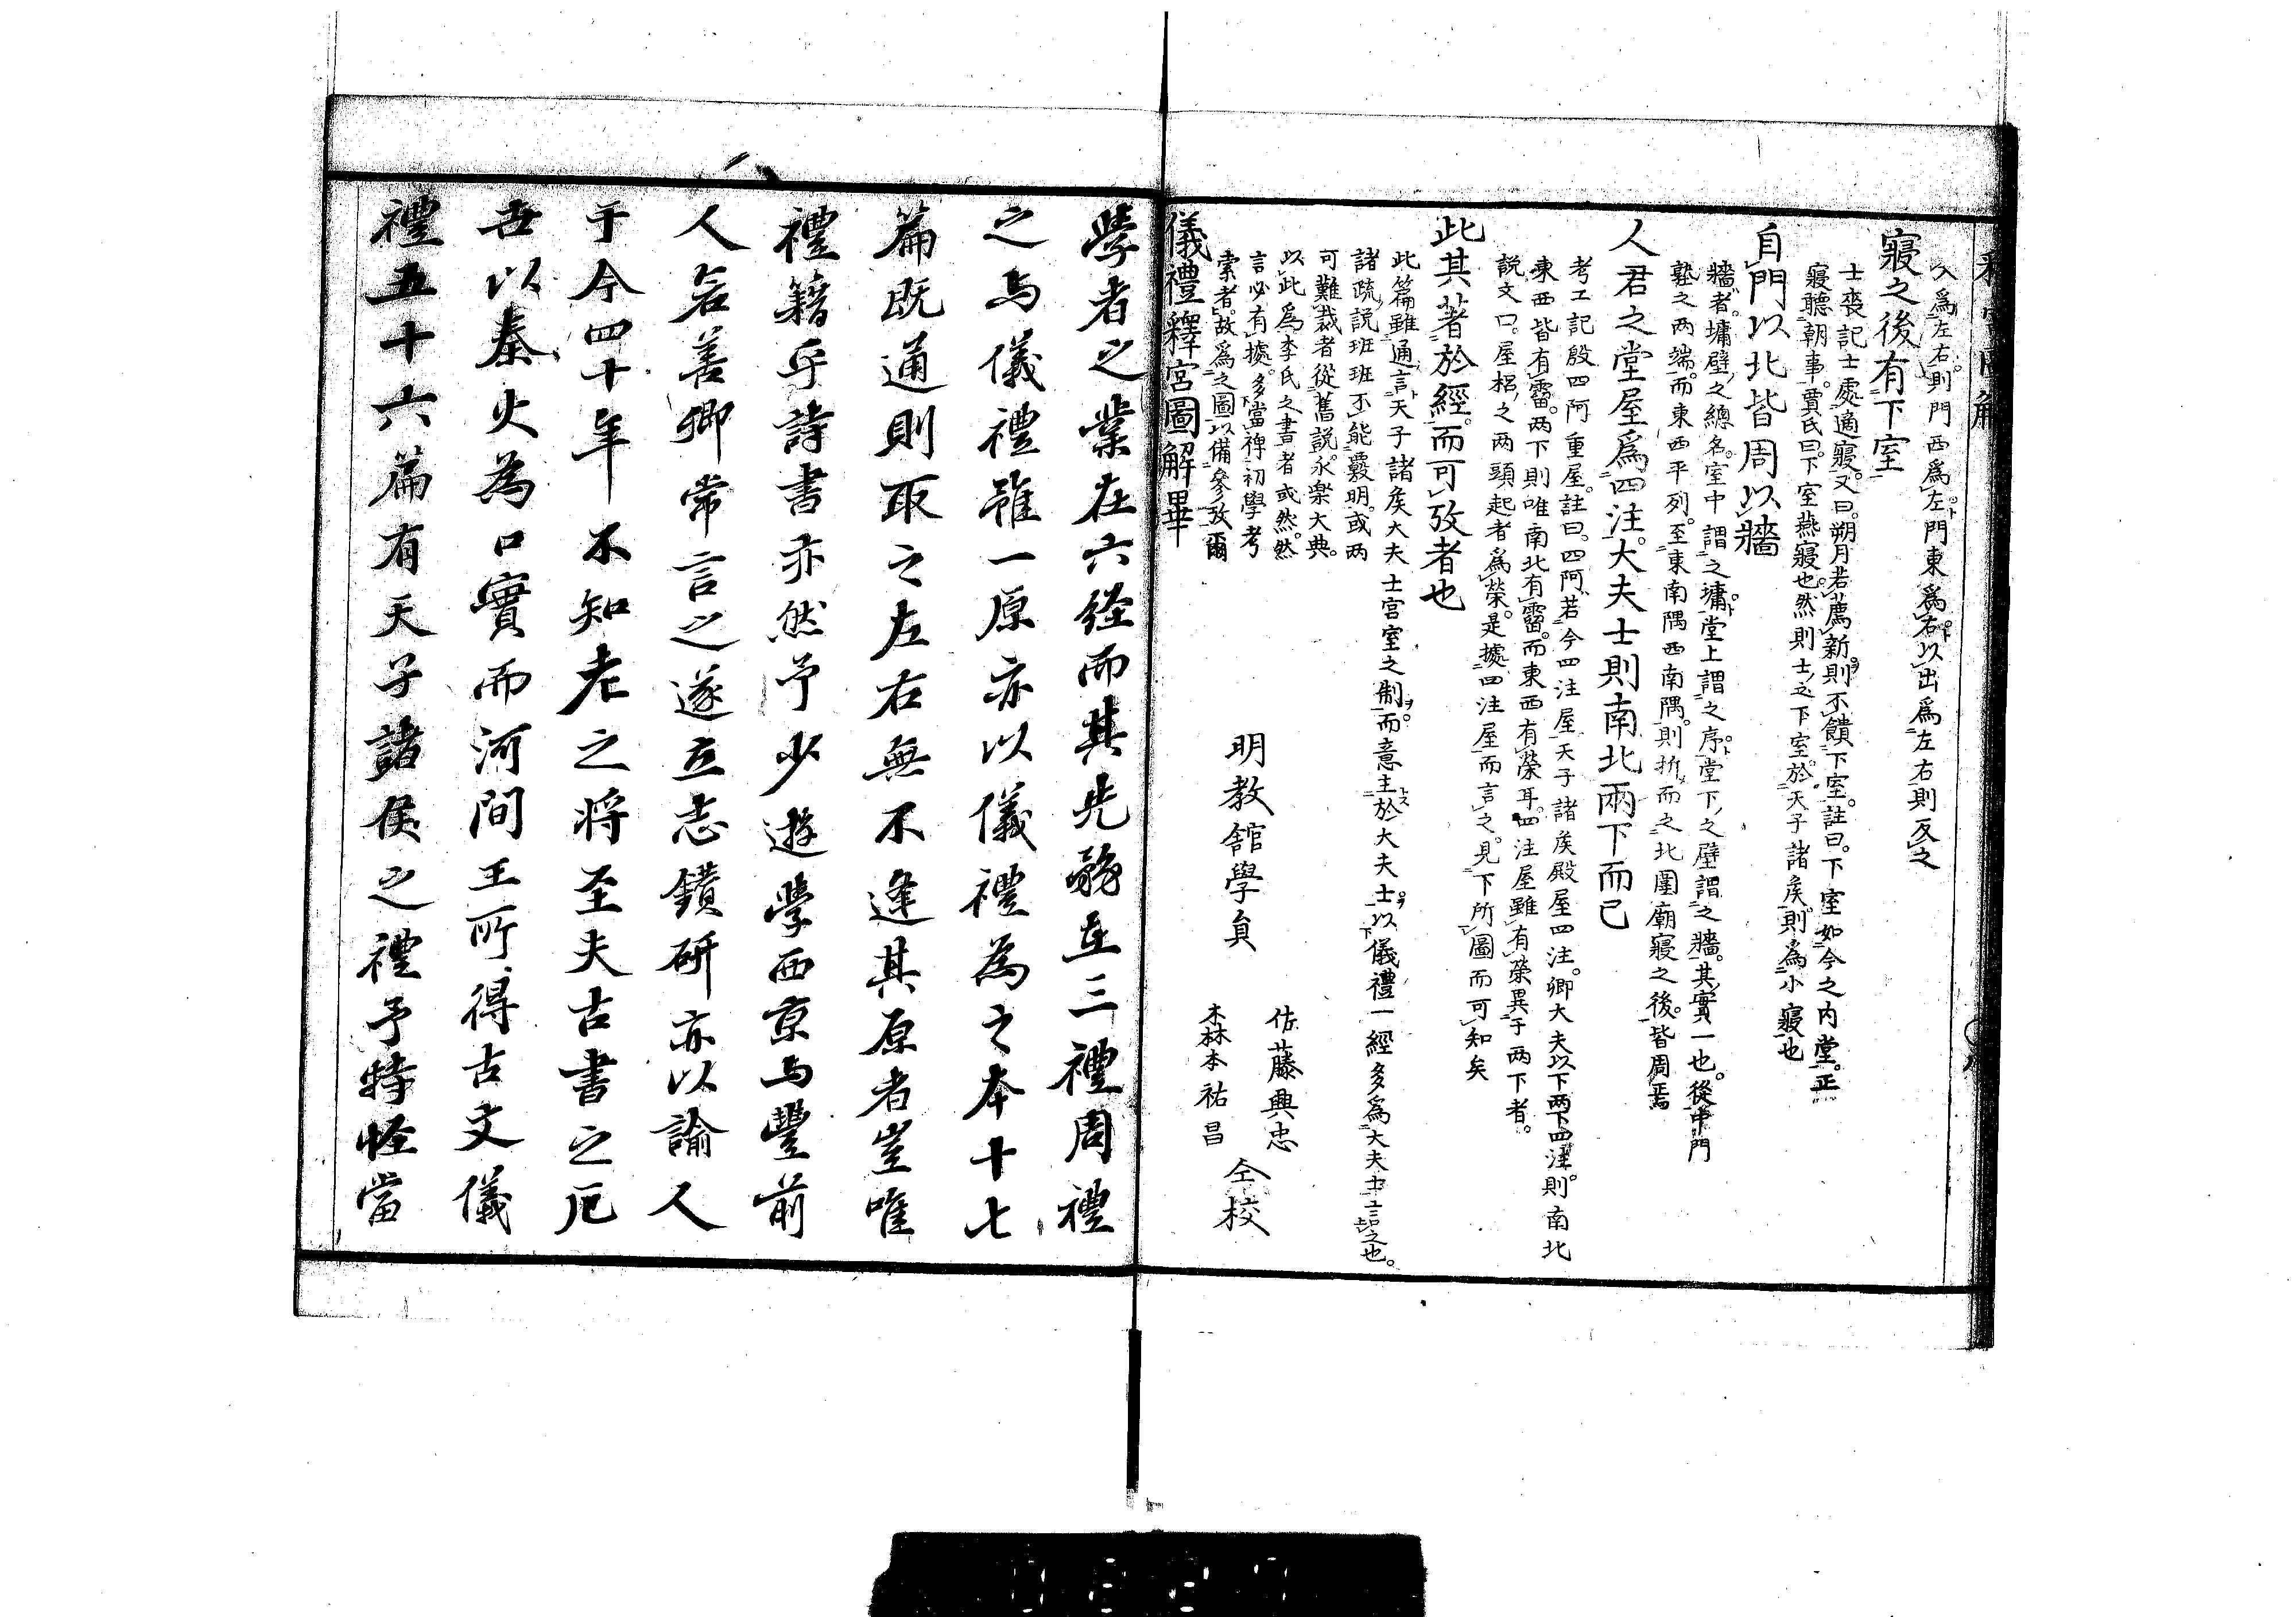 入爲左右則門西爲左門東爲右以出爲左右則反之
寢之後有下室
士喪記士處適寢又曰朔月若薦新則不饋下室註曰下室如今之內堂正
寢聽朝事賈氏曰下室燕寢也然則士之下室於天子諸矦則為小寢也
自門以北皆周以牆
牆者墉壁之總名室中謂之墉堂上謂之序堂下之壁謂之牆其實一也從中門
塾之兩端而東西平列至東南隅西南隅則折而之北圍廟寢之後皆周焉
人君之堂屋爲四注大夫士則南北兩下而已
考工記殷四阿重屋註曰四阿若今四注屋天子諸矦殿屋四注卿大夫以下兩下四注則南北
東西皆有霤兩下則唯南北有霤而東西有榮耳四注屋雖有榮異于兩下者
說文曰屋梠之兩頭起者爲榮是據四注屋而言之見下所圖而可知矣
此其著於經而可攷者也
此篇雖通言天子諸矦大夫士宮室之制而意主於大夫士以儀禮一經多爲大夫士言之也
諸疏說班班不能覈明或兩
可難裁者從舊說永楽大典
以此爲李氏之書者或然然
言必有據多當裨初學考
索者故爲之圖以備參攷爾
儀禮釋宮圖解畢
明教館學員
佐藤興忠
森本祐昌
仝校
學者之業在六経而其先務在三禮周禮
之与儀禮雖一原亦以儀禮為之本十七
篇既通則取之左右無不逢其原者豈唯
禮籍乎詩書亦然予少遊學西京与豐前
人岩善卿常言之遂立志鑽研亦以諭人
于今四十年不知老之将至夫古書之厄
世以秦火為口實而河間王所得古文儀
禮五十六篇有天子諸侯之禮予特怪當